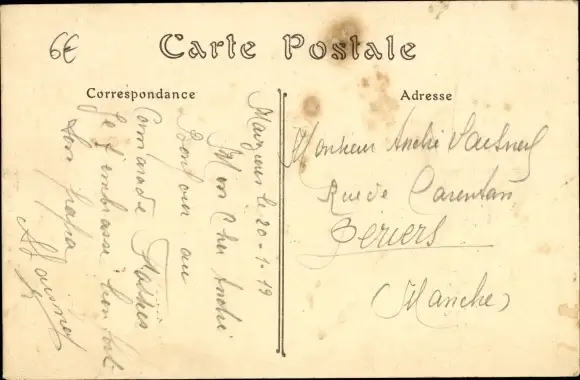 6€
Carte Postale
Correspondance
Adresse
le 20-1-19
Mon cher André
Bonjour au
Camarade
Je t'embrasse bien fort
ton papa
Monsieur André
Rue de Carentan
Periers
(Manche)